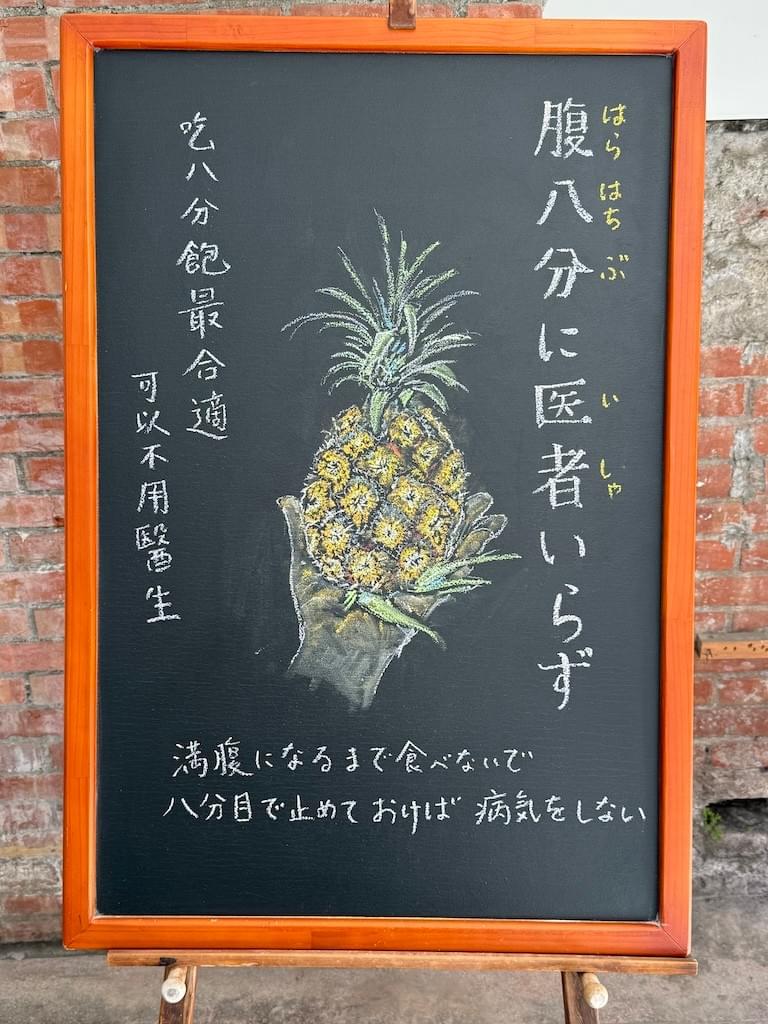 腹八分に医者いらず
はら はち ぶ い しゃ
吃八分飽最合適
可以不用醫生
満腹になるまで食べないで
八分目で止めておけば 病気をしない